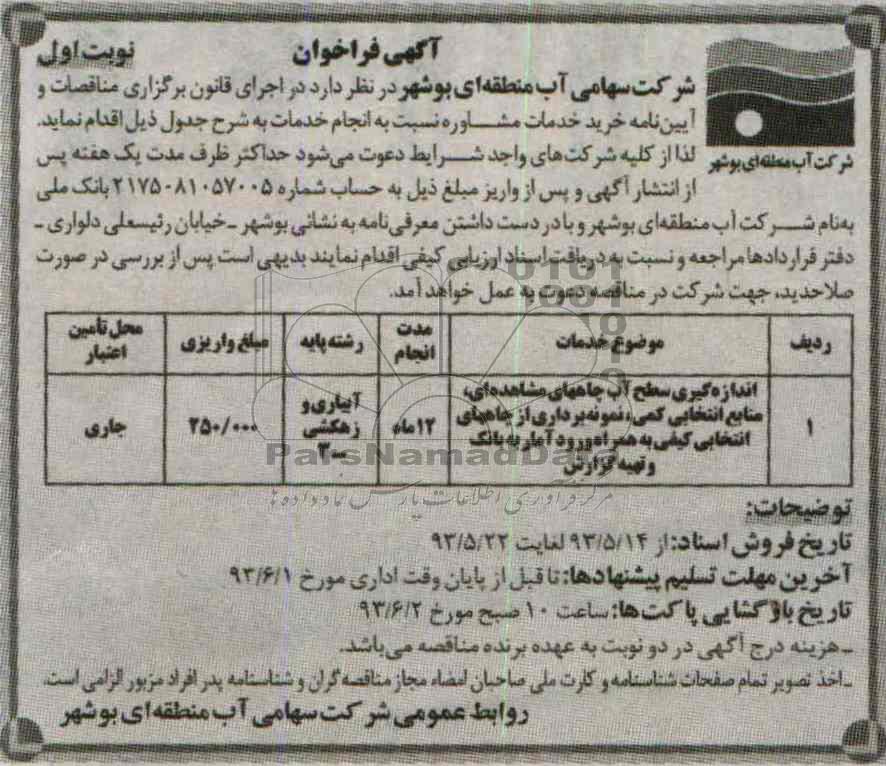 آگهی فراخوان
نوبت اول
شرکت سهامی آب منطقه‌ای بوشهر در نظر دارد در اجرای قانون برگزاری مناقصات و
آیین‌نامه خرید خدمات مشاوره نسبت به انجام خدمات به شرح جدول ذیل اقدام نماید.
لذا از کلیه شرکت‌های واجد شرایط دعوت می‌شود حداکثر ظرف مدت یک هفته پس
شرکت آب منطقه‌ای بوشهر
از انتشار آگهی و پس از واریز مبلغ ذیل به حساب شماره ۲۱۷۵۰۸۱۰۵۷۰۰۵ بانک ملی
به‌نام شرکت آب منطقه‌ای بوشهر و با در دست داشتن معرفی‌نامه به نشانی بوشهر ـ خیابان رئیسعلی دلواری ـ
دفتر قراردادها مراجعه و نسبت به دریافت اسناد ارزیابی کیفی اقدام نمایند بدیهی است پس از بررسی در صورت
صلاحدید، جهت شرکت در مناقصه دعوت به عمل خواهد آمد.
ردیف
موضوع خدمات
مدت انجام
رشته پایه
مبلغ واریزی
محل تأمین اعتبار
۱
اندازه‌گیری سطح آب چاههای مشاهده‌ای،
منابع انتخابی کمی، نمونه‌برداری از چاههای
انتخابی کیفی به همراه ورود آمار به بانک
و تهیه گزارش
۱۲ ماه
آبیاری و
زهکشی
۲۵۰/۰۰۰
جاری
ParsNamadData
مرکز فرآوری اطلاعات پارس نماد داده‌ها
توضیحات:
تاریخ فروش اسناد: از ۹۳/۵/۱۴ لغایت ۹۳/۵/۲۲
آخرین مهلت تسلیم پیشنهادها: تا قبل از پایان وقت اداری مورخ ۹۳/۶/۱
تاریخ بازگشایی پاکت‌ها: ساعت ۱۰ صبح مورخ ۹۳/۶/۲
ـ هزینه درج آگهی در دو نوبت به عهده برنده مناقصه می‌باشد.
ـ اخذ تصویر تمام صفحات شناسنامه و کارت ملی صاحبان امضاء مجاز مناقصه‌گران و شناسنامه پدر افراد مزبور الزامی است.
روابط عمومی شرکت سهامی آب منطقه‌ای بوشهر